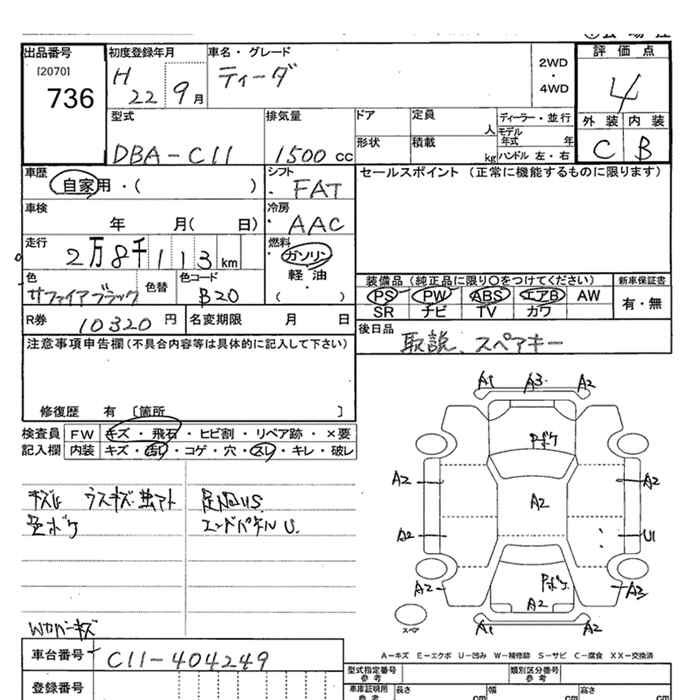 出品番号 初度登録年月 車名・グレード 2WD・4WD 評価点
[2070] 736 H22 9月 ティーダ 4
型式 排気量 ドア 定員 人 ディーラー・並行 外装 内装
DBA-C11 1500cc 形状 積載 kg モデル年式 年 ハンドル 左・右 C B
車歴 シフト セールスポイント (正常に機能するものに限ります)
自家用・( ) FAT
車検 冷房
年 月( 日) AAC
走行 燃料
2万8千113km ガソリン
軽・油
色 色替 色コード ( )
サファイアブラック B20
装備品(純正品に限り○をつけてください) 新車保証書
PS PW ABS エアB AW 有・無
SR ナビ TV カワ
R券 10320円 名変期限 月 日 後日品 取説、スペアキー
注意事項申告欄(不具合内容等は具体的に記入して下さい)
修復歴 有 [箇所 ]
検査員 FW キズ・飛石・ヒビ割・リペア跡・×要
記入欄 内装 キズ・・コゲ・穴・スレ・キレ・破レ
A1 A3 A2
Pボケ
A2 A2 A2
A2 U1
A2 Pボケ A3
A2
スペア A1 A2
ウスキズ
エンドパネルU.
Wカバーキズ
A=キズ E=エクボ U=凹み W=補修跡 S=サビ C=腐食 XX=交換済
車台番号 C11-404249
登録番号
型式指定番号 参考 類別区分番号 参考
車庫証明用 参考 長さ cm 幅 cm 高さ cm